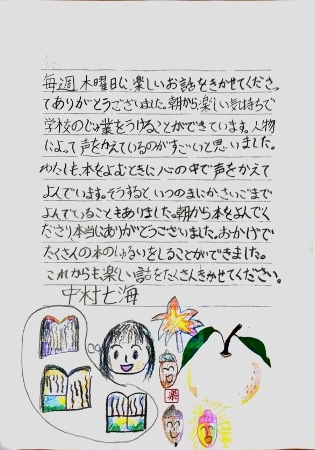 毎週木曜日に、楽しいお話をきかせてくださっ
てありがとうございました。朝から楽しい気持ちで
学校のじゅ業をうけることができています。人物
によって声をかえているのがすごいと思いました。
わたしも、本をよむときに心の中で声をかえて
よんでいます。そうすると、いつのまにか、さいごまで
よんでいることもありました。朝から本をよんでく
ださり、本当にありがとうございました。おかげで
たくさんの本のしゅるいをしることができました。
これからも、楽しい話をたくさんきかせてください。
中村七海